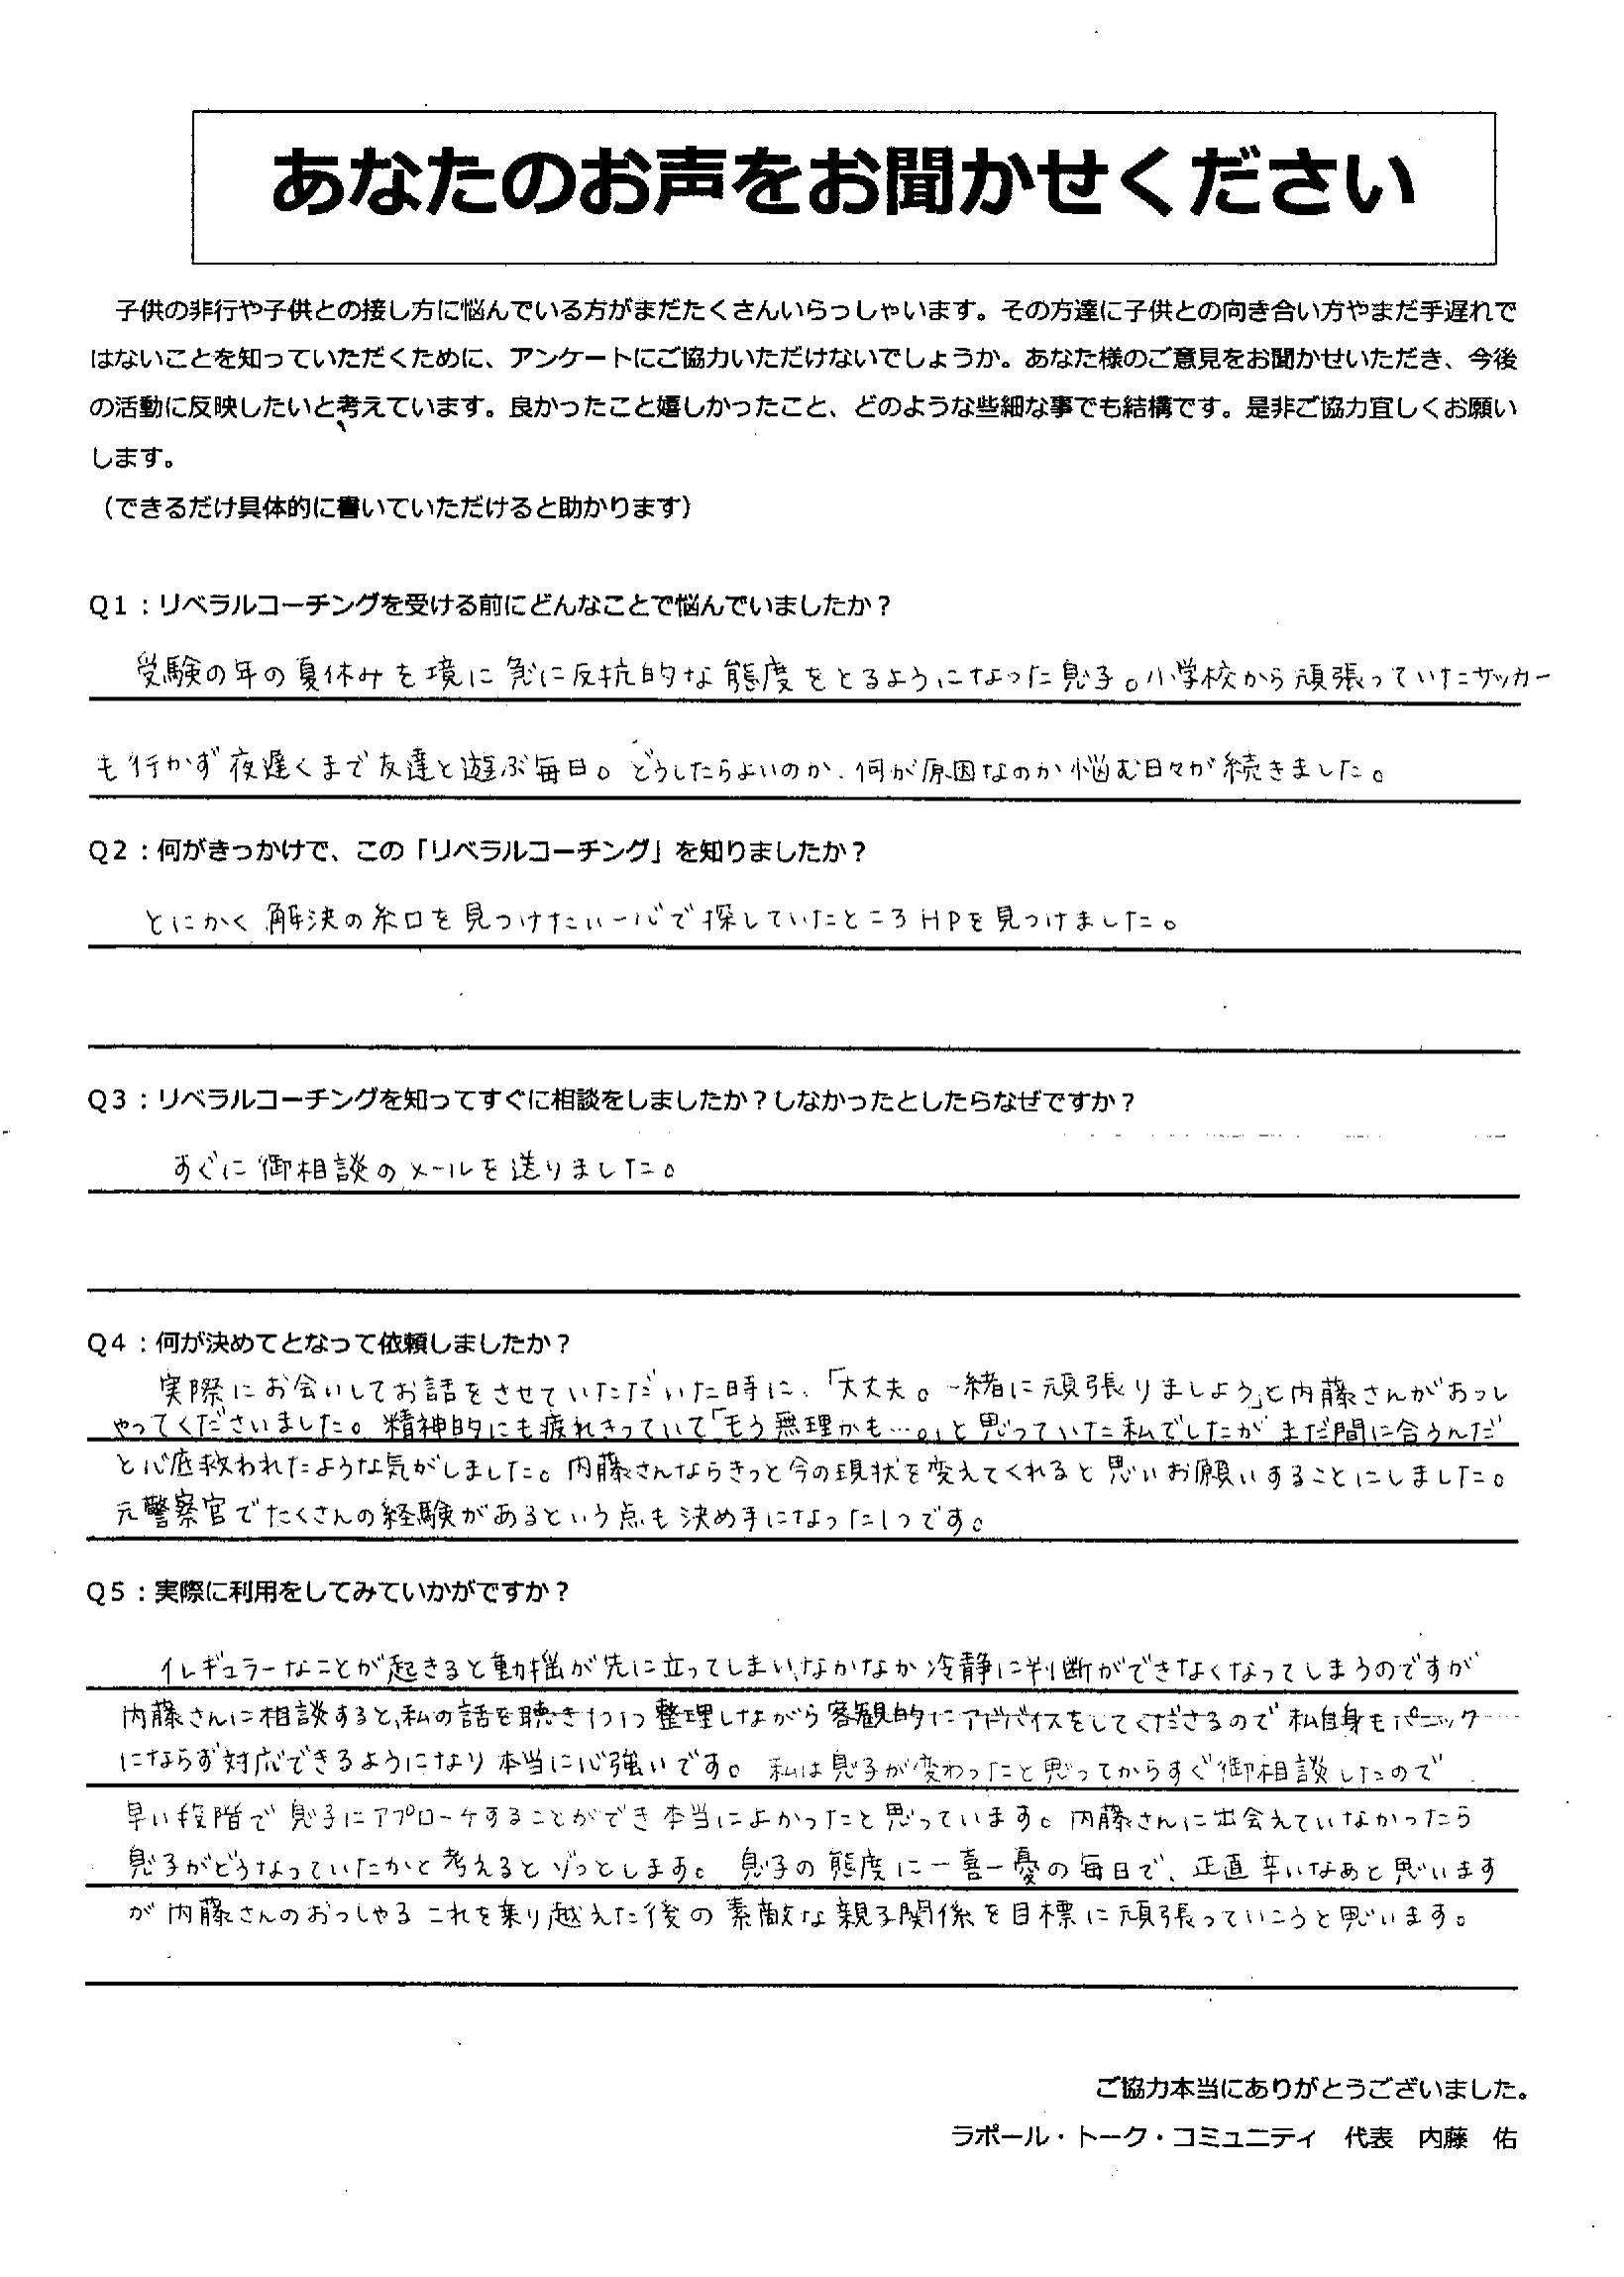 あなたのお声をお聞かせください
子供の非行や子供との接し方に悩んでいる方がまだたくさんいらっしゃいます。その方達に子供との向き合い方やまだ手遅れで
はないことを知っていただくために、アンケートにご協力いただけないでしょうか。あなた様のご意見をお聞かせいただき、今後
の活動に反映したいと考えています。良かったこと嬉しかったこと、どのような些細な事でも結構です。是非ご協力宜しくお願い
します。
（できるだけ具体的に書いていただけると助かります）
Q1：リベラルコーチングを受ける前にどんなことで悩んでいましたか？
受験の年の夏休みを境に急に反抗的な態度をとるようになった息子。小学校から頑張っていたサッカー
も行かず夜遅くまで友達と遊ぶ毎日。どうしたらよいのか、何が原因なのか悩む日々が続きました。
Q2：何がきっかけで、この「リベラルコーチング」を知りましたか？
とにかく解決の糸口を見つけたい一心で探していたところHPを見つけました。
Q3：リベラルコーチングを知ってすぐに相談をしましたか？しなかったとしたらなぜですか？
すぐに御相談のメールを送りました。
Q4：何が決めてとなって依頼しましたか？
実際にお会いしてお話をさせていただいた時に、「大丈夫。一緒に頑張りましょう」と内藤さんがおっし
ゃってくださいました。精神的にも疲れきっていて「もう無理かも…。」と思っていた私でしたがまだ間に合うんだ
と心底救われたような気がしました。内藤さんならきっと今の現状を変えてくれると思いお願いすることにしました。
元警察官でたくさんの経験があるという点も決め手になった1つです。
Q5：実際に利用をしてみていかがですか？
イレギュラーなことが起きると動揺が先に立ってしまい、なかなか冷静に判断ができなくなってしまうのですが
内藤さんに相談すると、私の話を聴きつつ整理しながら客観的にアドバイスをしてくださるので私自身もパニック
にならず対応できるようになり本当に心強いです。私は息子が変わったと思ってからすぐ御相談したので
早い段階で息子にアプローチすることができ本当によかったと思っています。内藤さんに出会えていなかったら
息子がどうなっていたかと考えるとゾッとします。息子の態度に一喜一憂の毎日で、正直辛いなあと思います
が内藤さんのおっしゃるこれを乗り越えた後の素敵な親子関係を目標に頑張っていこうと思います。
ご協力本当にありがとうございました。
ラポール・トーク・コミュニティ　代表　内藤　佑